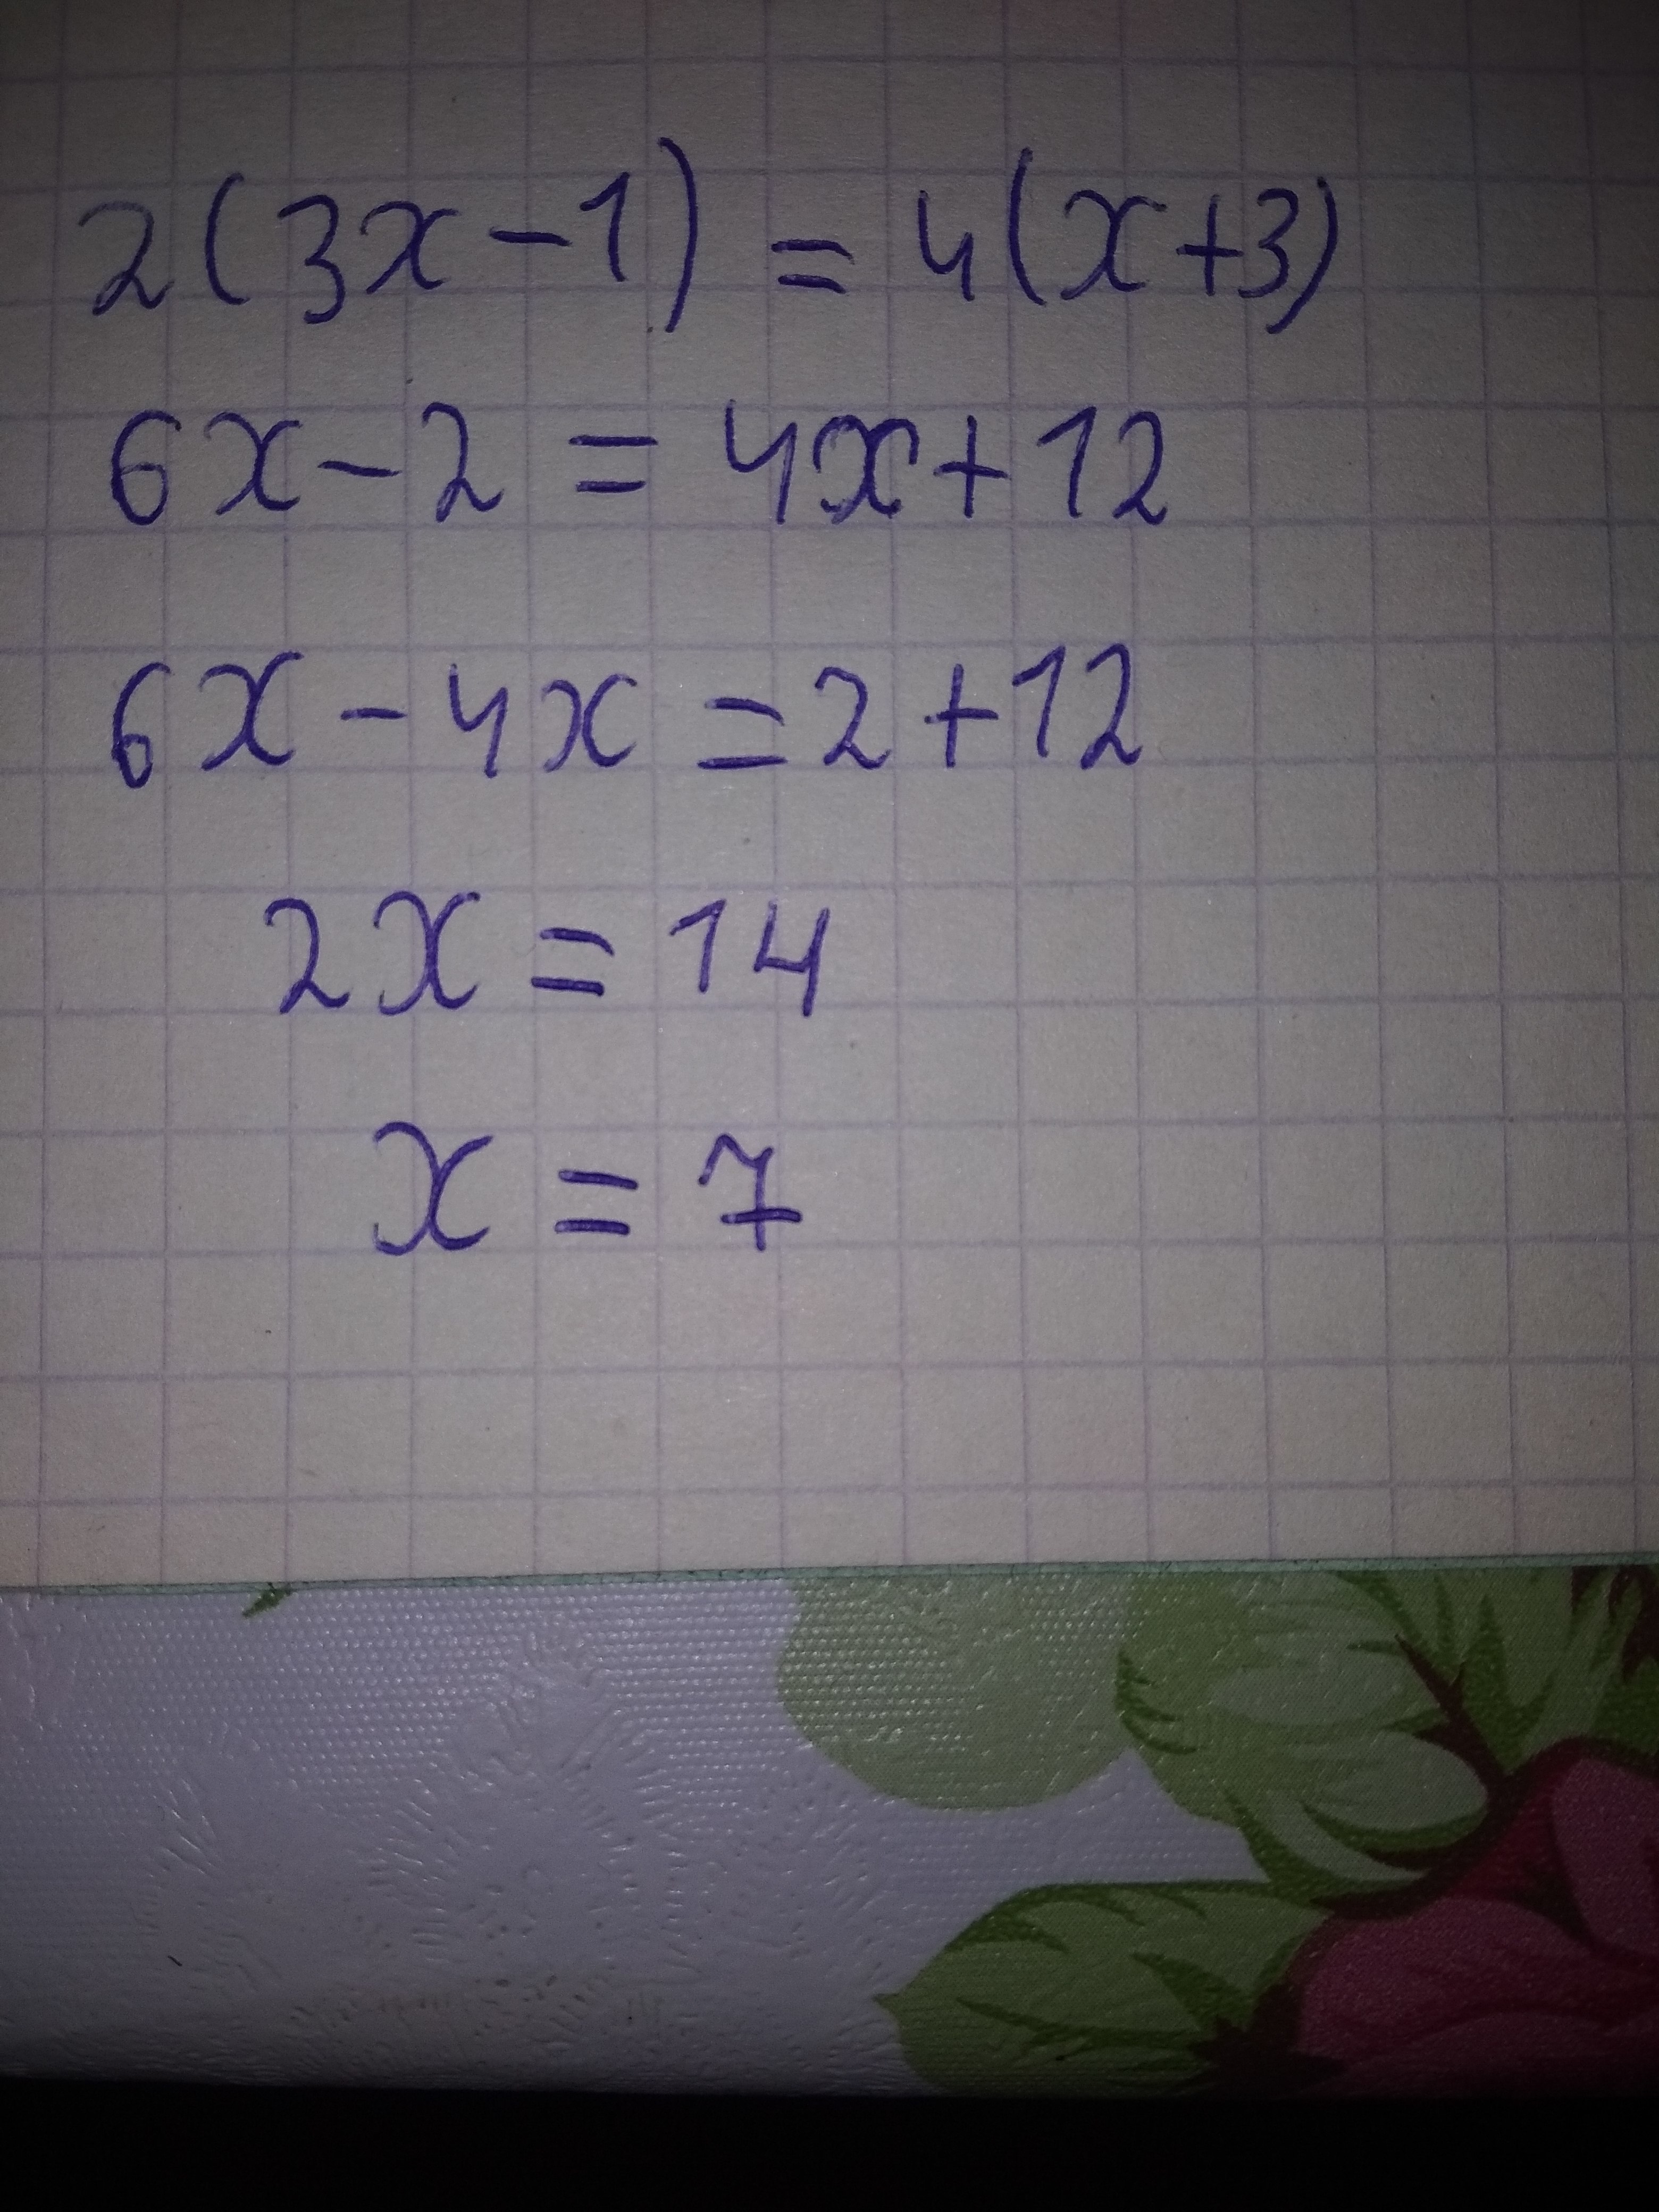 2(3x-1) = 4(x+3)
6x-2 = 4x+12
6x-4x = 2+12
2x = 14
x = 7